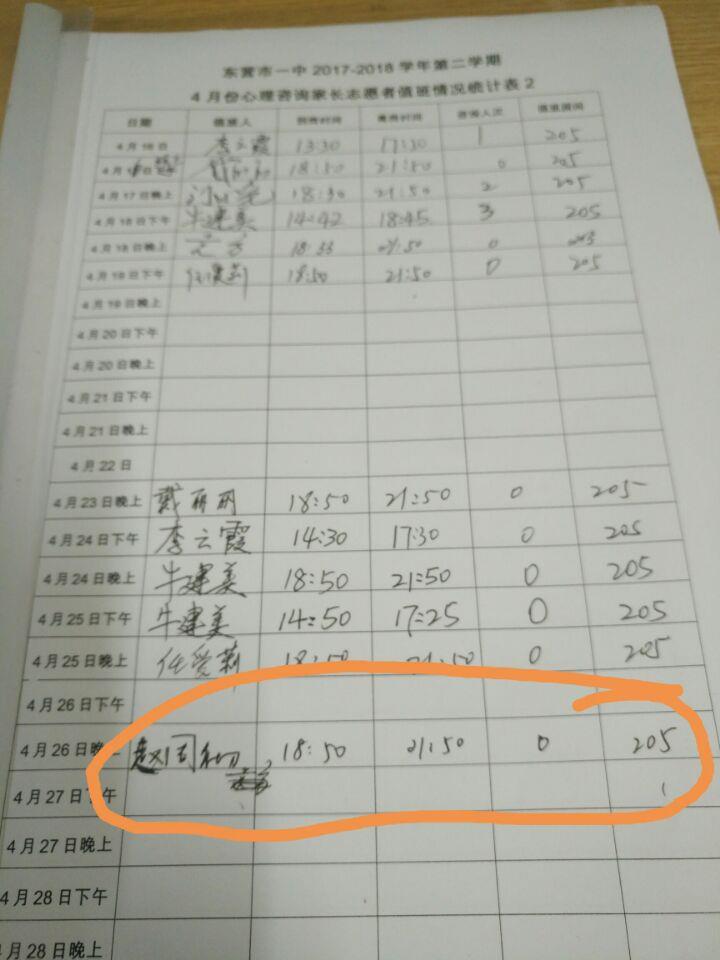 东营市一中 2017-2018 学年第二学期
4 月份心理咨询家长志愿者值班情况统计表 2
日期 值班人 到岗时间 离岗时间 咨询人次 值班房间
4 月 16 日 李云霞 13:30 17:30 1 205
18:50 21:50 0 205
4 月 17 日晚上 18:30 21:50 2 205
4 月 18 日下午 牛建美 14:42 18:45 3 205
4 月 18 日晚上 18:33 21:50 0
4 月 19 日下午 任爱莉 18:50 21:50 0 205
4 月 19 日晚上
4 月 20 日下午
4 月 20 日晚上
4 月 21 日下午
4 月 21 日晚上
4 月 22 日
4 月 23 日晚上 戴丽丽 18:50 21:50 0 205
4 月 24 日下午 李云霞 14:30 17:30 0 205
4 月 24 日晚上 牛建美 18:50 21:50 0 205
4 月 25 日下午 牛建美 14:50 17:25 0 205
4 月 25 日晚上 任爱莉 18:50 21:50 0 205
4 月 26 日下午
4 月 26 日晚上 赵同 18:50 21:50 0 205
4 月 27 日下午
4 月 27 日晚上
4 月 28 日下午
4 月 28 日晚上